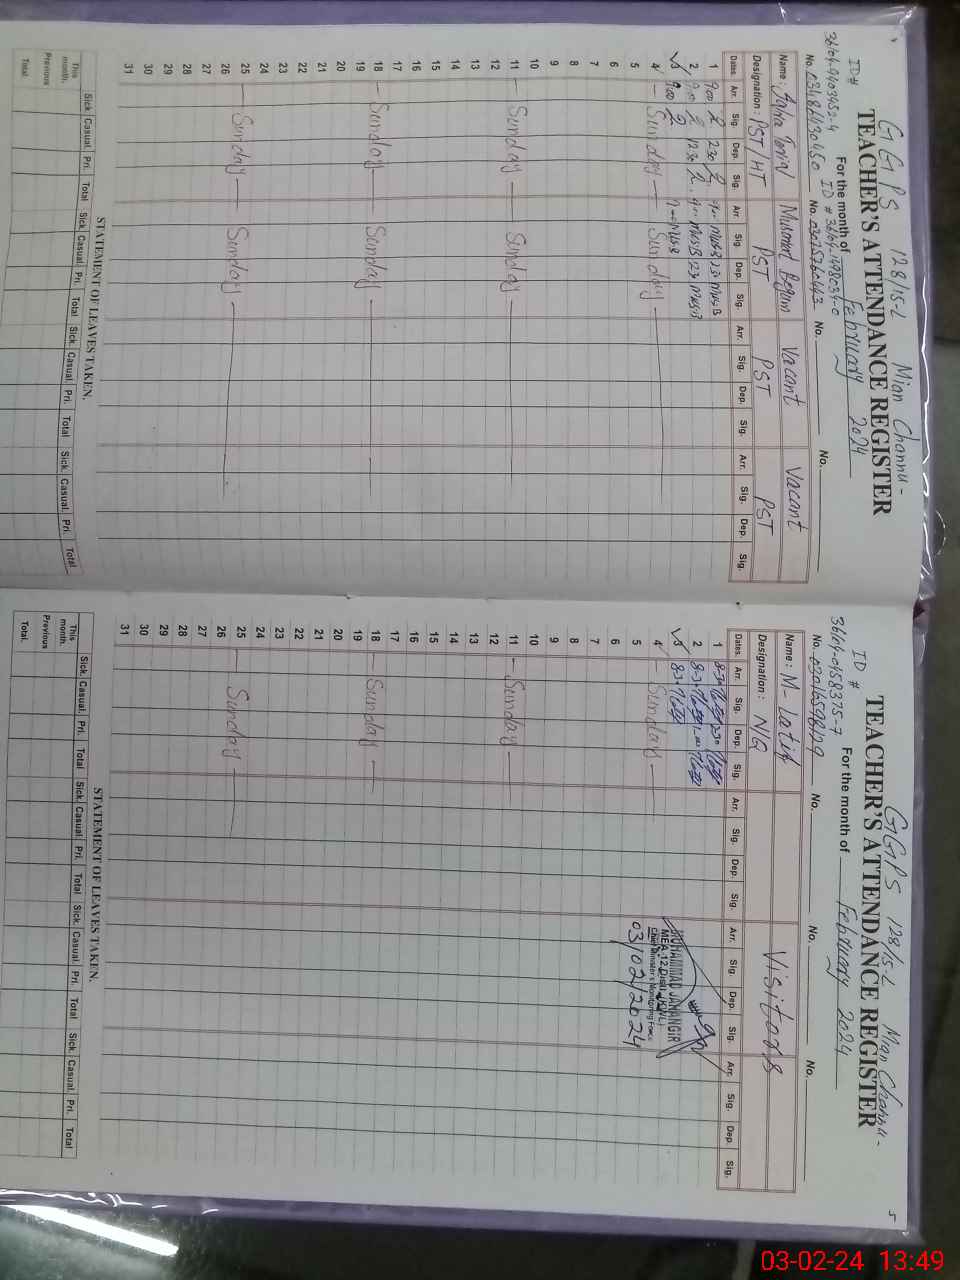 GGPS 128/15-L Mian Channu-
TEACHER'S ATTENDANCE REGISTER
For the month of February 2024
ID#
36104-9403452-4 ID #
No. 03486430450 No. 03075760443 No. No.
Name: Vacant Vacant
Designation: PST/HT PST PST PST
Dates. Arr. Sig. Dep. Sig. Arr. Sig. Dep. Sig. Arr. Sig. Dep. Sig. Arr. Sig. Dep. Sig.
1 9:00 2:30 MusB MusB
2 9:00 12:30 MusB MusB
3 9:00 MusB
4 Sunday Sunday
5
6
7
8
9
10
11 Sunday Sunday
12
13
14
15
16
17
18 Sunday Sunday
19
20
21
22
23
24
25 Sunday Sunday
26
27
28
29
30
31
STATEMENT OF LEAVES TAKEN.
Sick. Casual. Pri. Total Sick. Casual. Pri. Total Sick. Casual. Pri. Total Sick. Casual. Pri. Total
This month.
Previous
Total.
5
GGPS 128/15-L Mian Channu-
TEACHER'S ATTENDANCE REGISTER
For the month of February 2024
ID #
36104-0458375-7
No. No. No. No.
Name: M- Latif Visitors
Designation: N/Q
Dates. Arr. Sig. Dep. Sig. Arr. Sig. Dep. Sig. Arr. Sig. Dep. Sig. Arr. Sig. Dep. Sig.
1 8-30
2 8-30
3 8-30
MUHAMMAD JAHANGIR
MEA-12 Distt. (KWL)
Chief Minister's Monitoring Force
03/02/2024
4 Sunday
5
6
7
8
9
10
11 Sunday
12
13
14
15
16
17
18 Sunday
19
20
21
22
23
24
25 Sunday
26
27
28
29
30
31
STATEMENT OF LEAVES TAKEN.
Sick. Casual. Pri. Total Sick. Casual. Pri. Total Sick. Casual. Pri. Total Sick. Casual. Pri. Total
This month.
Previous
Total.
03-02-24 13:49